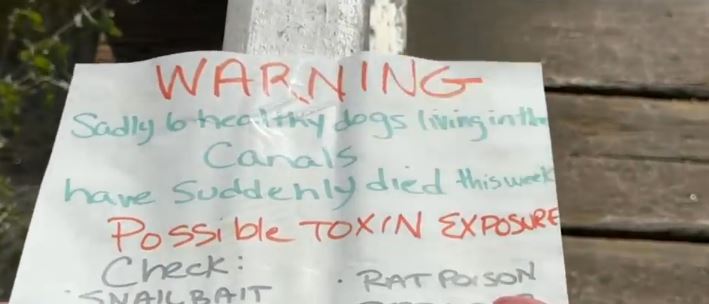 WARNING
Sadly 6 healthy dogs living in the
Canals
have Suddenly died this week
Possible TOXIN EXPOSURE
Check:
· RAT POISON
· SNAIL BAIT